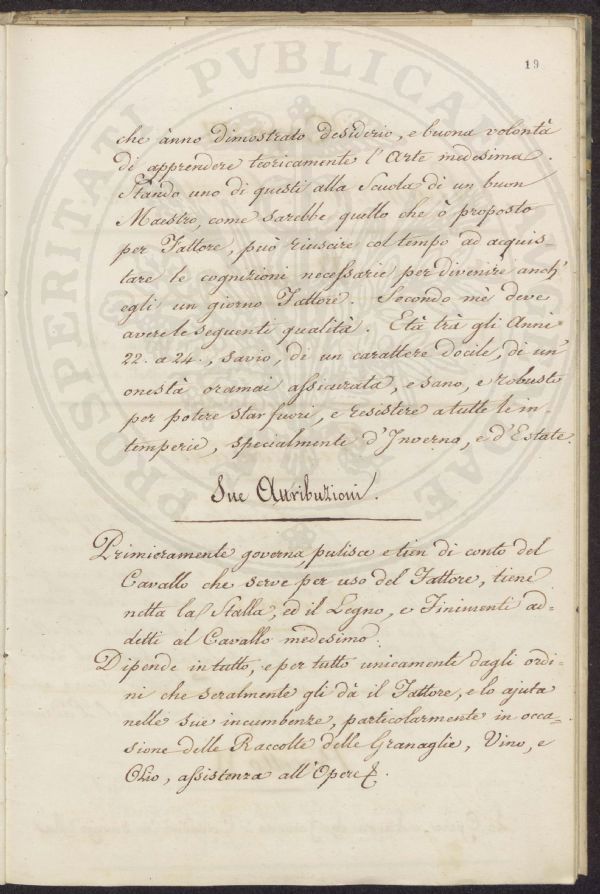 19
che ànno dimostrato desiderio, e buona volontà
di apprendere teoricamente l'Arte medesima.
Stando uno di questi alla Scuola di un buon
Maestro, come sarebbe quello che ò proposto
per Fattore, può riuscire col tempo ad acquis-
tare le cognizioni necessarie per divenire anch'
egli un giorno Fattore. Secondo mè deve
avere le seguenti qualità. Età trà gli Anni
22. a 24., savio, di un carattere docile, di un'
onestà oramai assicurata, e sano, e robusto
per potere star fuori, e resistere a tutte le in-
temperie, specialmente d'Inverno, e d'Estate.
Sue Attribuzioni.
Primieramente governa, pulisce e tien di conto del
Cavallo che serve per uso del Fattore, tiene
netta la Stalla, ed il Legno, e Finimenti ad=
detti al Cavallo medesimo.
Dipende in tutto, e per tutto unicamente dagli ordi-
ni che seralmente gli dà il Fattore, e lo ajuta
nelle sue incumbenze, particolarmente in occa-
sione delle Raccolte delle Granaglie, Vino, e
Olio, assistenza all'Opere &.
PROSPERITATI PVBLICAE